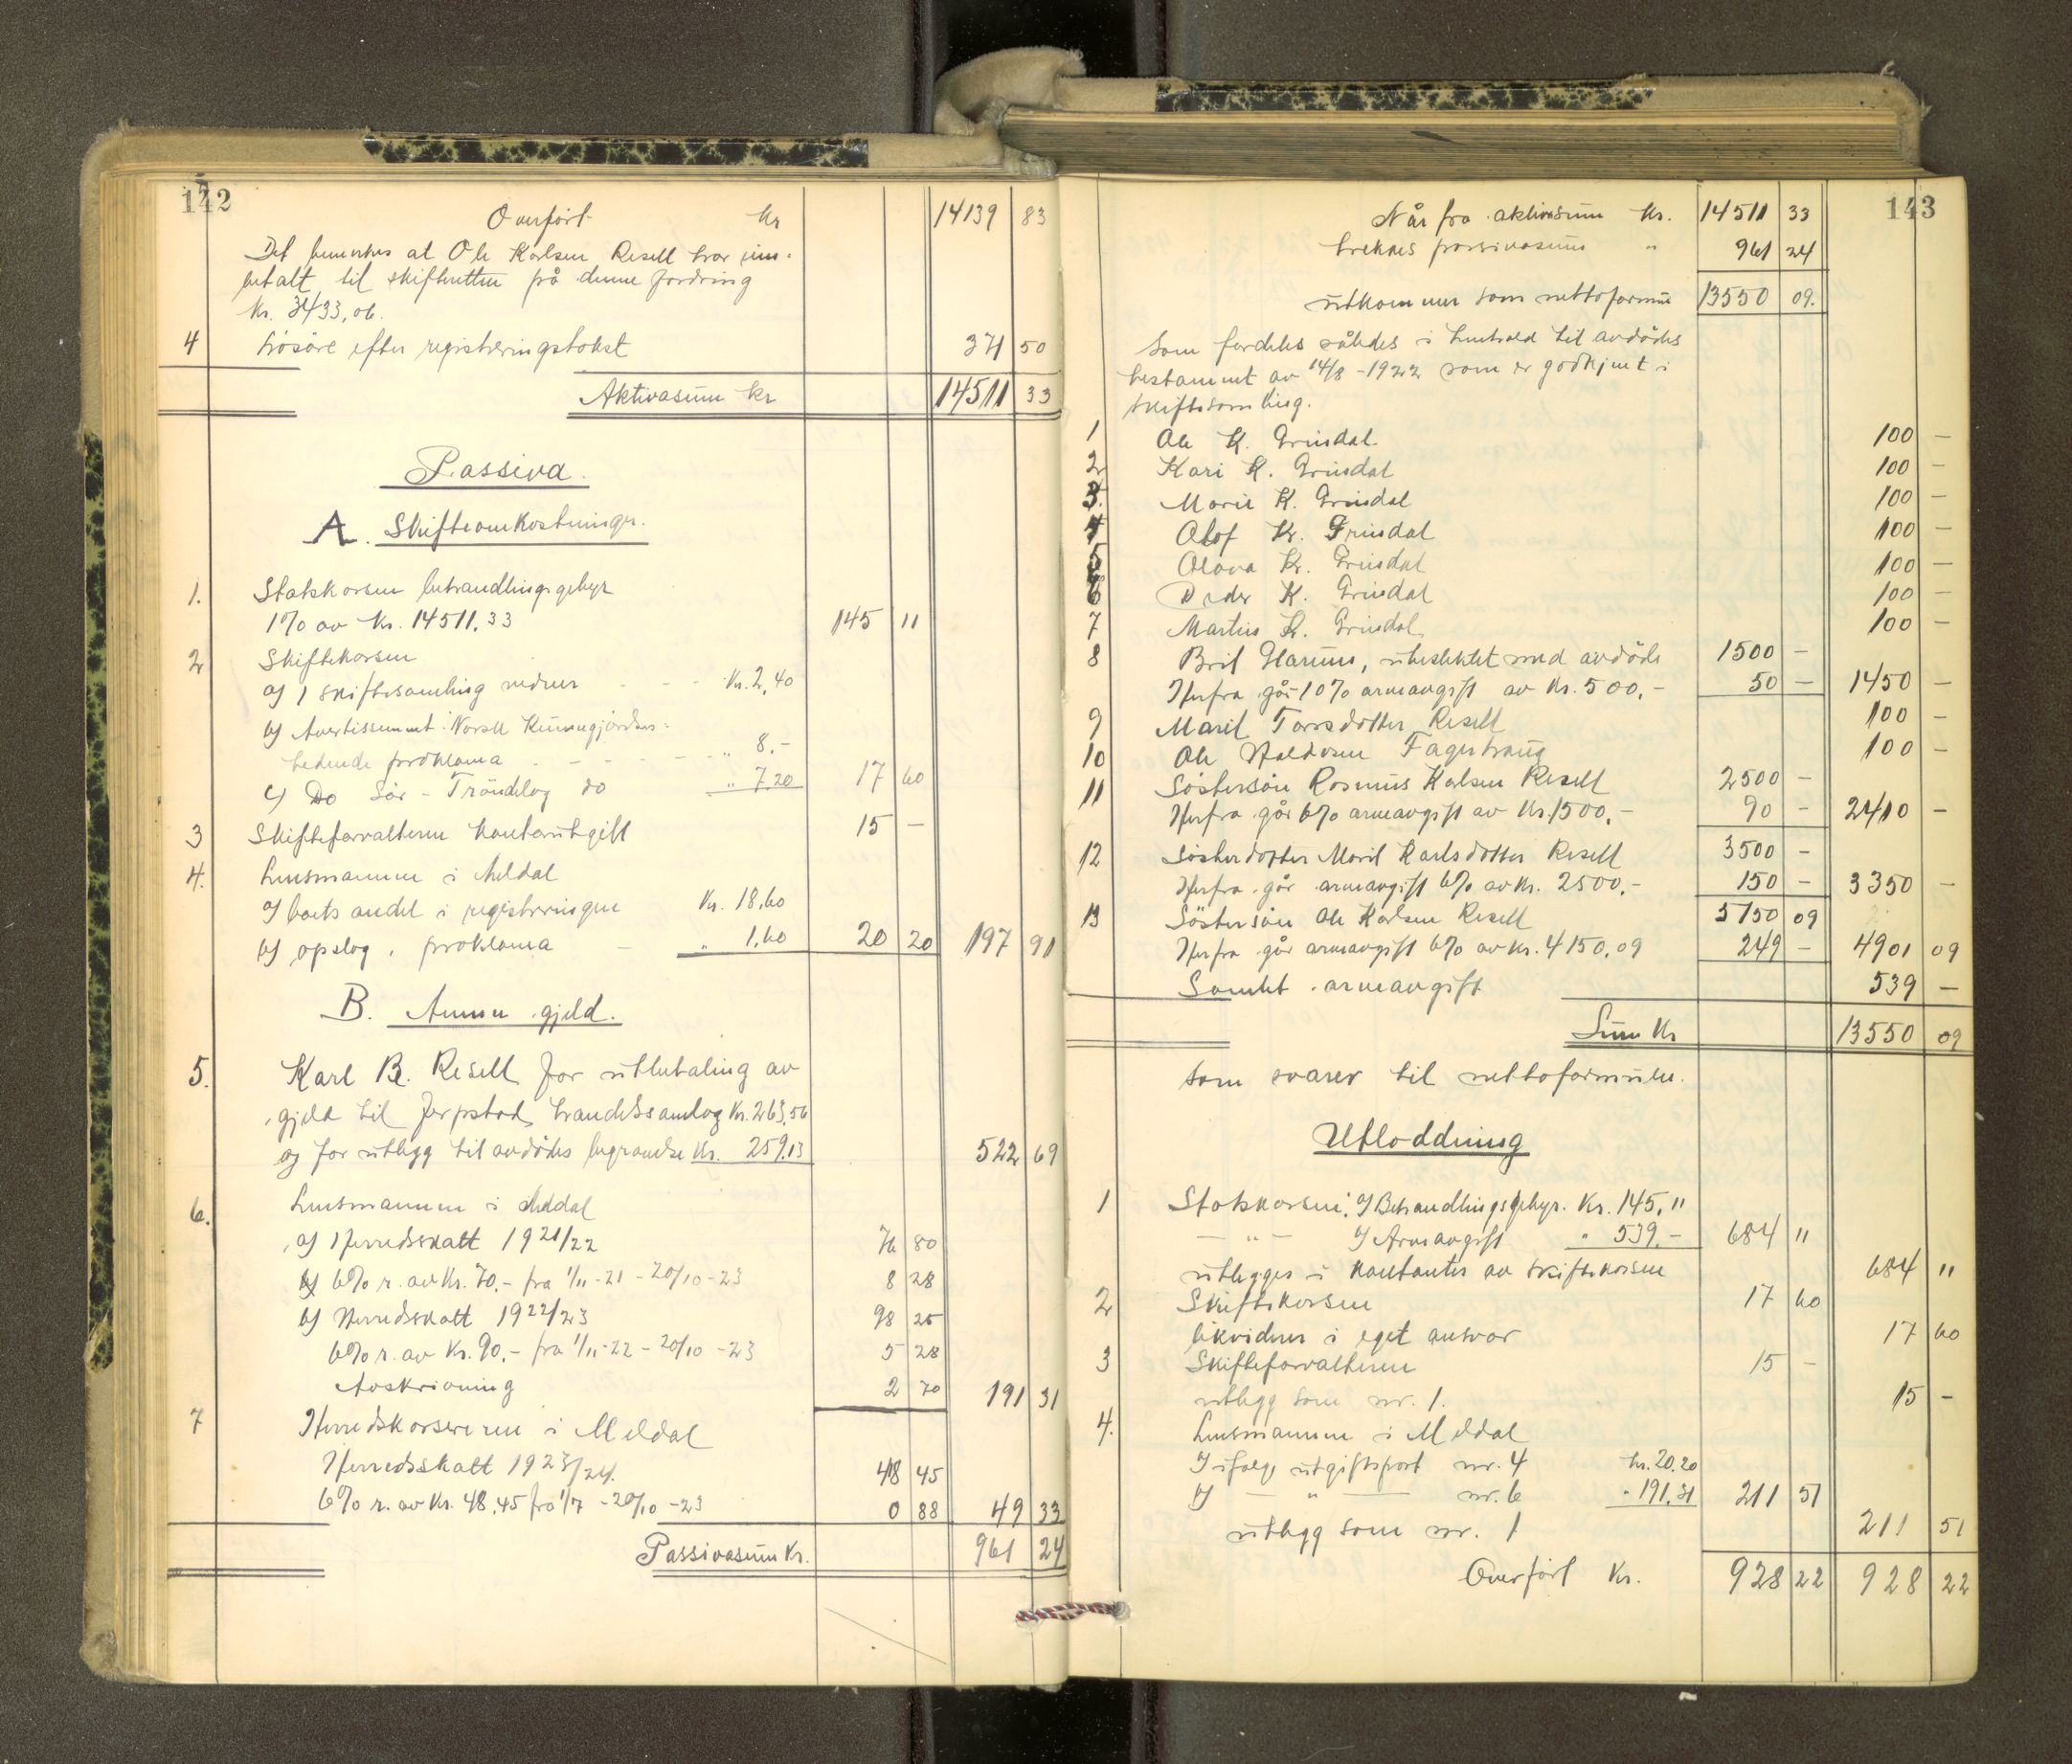 142
Overført kr 14139 83
Det bemerkes at Ole Karlsen Resell har inn-
betalt til skifteretten på denne fordring
kr. 3433,06.
4 Løsøre efter registreringstakst 371 50
Aktivasum kr 14511 33
Passiva.
A. Skifteomkostninger.
1. Statskassen behandlingsgebyr
1% av kr. 14511.33 145 11
2 Skiftekassen
a) 1 skiftesamling - - - Kr. 2,40
b) Avertissement: Norsk Kunngjørelses-
tidende proklama - - - - - " 8.-
c) Do Sør-Trøndelag do " 7.20 17 60
3 Skifteforvalteren kontorutgift 15 -
4. Lensmannen i Meldal
a) boets andel i registreringen Kr. 18,60
b) opslag, proklama - " 1,60 20 20 197 91
B. Annen gjeld.
5. Karl B. Resell for utbetaling av
gjeld til Jerpstad handelssamlag Kr. 263,56
og for utlegg til avdødes begravelse Kr. 259,13 522 69
6. Lensmannen i Meldal
a) Herredsskatt 1921/22 76 80
6% r. av Kr. 70.- fra 1/11-21 - 20/10-23 8 28
b) Herredsskatt 1922/23 98 25
6% r. av Kr. 90.- fra 1/11-22 - 20/10-23 5 28
Avskrivning 2 70 191 31
7 Herredskassereren i Meldal
Herredsskatt 1923/24. 48 45
6% r. av Kr. 48.45 fra 1/7 - 20/10-23 0 88 49 33
Passivasum Kr. 961 24
143
Når fra aktivasum Kr. 14511 33
trekkes passivasum " 961 24
utkommer som nettoformue 13550 09.
som fordeles således i henhold til avdødes
testament av 14/8-1922 som er godkjent i
skiftesamling.
1 Ole K. Grindal 100 -
2 Kari K. Grindal 100 -
3. Marie K. Grindal 100 -
4 Olof K. Grindal 100 -
5 Olava K. Grindal 100 -
6 Peder K. Grindal 100 -
7 Martin K. Grindal 100 -
8 Brit Harum, ubeslektet med avdøde 1500 -
Herfra går 10% arveavgift av Kr. 500.- 50 - 1450 -
9 Marit Torsdotter Resell 100 -
10 Ole Haldosen Fagerhaug 100 -
11 Søstersøn Rasmus Kalsen Resell 2500 -
Herfra går 6% arveavgift av Kr. 1500.- 90 - 2410 -
12 Søsterdotter Marit Karlsdotter Resell 3500 -
Herfra går arveavgift 6% av Kr. 2500.- 150 - 3350 -
13 Søstersøn Ole Karlsen Resell 5150 09
Herfra går arveavgift 6% av Kr. 4150.09 249 - 4901 09
Samlet arveavgift 539 -
Sum Kr 13550 09
som svarer til nettoformuen.
Utlodding
1 Statskassen: a) Behandlingsgebyr. Kr. 145,11
- " - b) Arveavgift " 539.- 684 11
utlegges i kontanter av skiftekassen 684 11
2 Skiftekassen 17 60
likviderer i eget ansvar 17 60
3 Skifteforvalteren 15 -
utlegg som nr. 1. 15 -
4. Lensmannen i Meldal
a) ifølge utgiftspost nr. 4 kr. 20.20
b) - " - nr. 6 " 191.31 211 51
utlegg som nr. 1 211 51
Overført Kr. 928 22 928 22